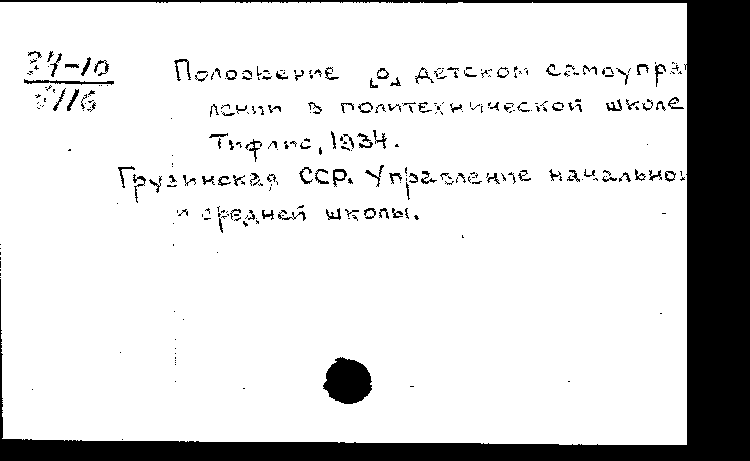 34-10
5116
Положение [о] детском самоупра
лении в политехнической школе
Тифлис, 1934.
Грузинская ССР. Управление начально
и средней школы.